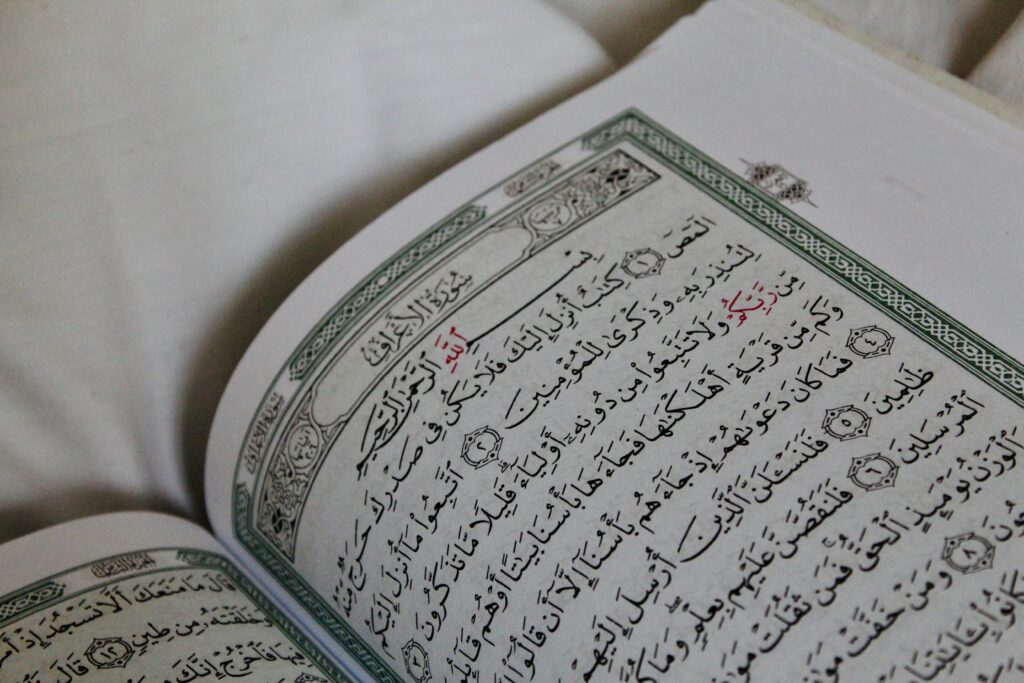 سُورَةُ الْأَعْرَافِ
بِسْمِ ٱللَّهِ ٱلرَّحْمَٰنِ ٱلرَّحِيمِ
الٓمٓصٓ ١ كِتَٰبٌ أُنزِلَ إِلَيْكَ فَلَا يَكُن فِى صَدْرِكَ حَرَجٌ مِّنْهُ
لِتُنذِرَ بِهِۦ وَذِكْرَىٰ لِلْمُؤْمِنِينَ ٢ ٱتَّبِعُوا۟ مَآ أُنزِلَ إِلَيْكُم
مِّن رَّبِّكُمْ وَلَا تَتَّبِعُوا۟ مِن دُونِهِۦٓ أَوْلِيَآءَ ۗ قَلِيلًا مَّا تَذَكَّرُونَ ٣
وَكَم مِّن قَرْيَةٍ أَهْلَكْنَٰهَا فَجَآءَهَا بَأْسُنَا بَيَٰتًا أَوْ هُمْ
٤ فَمَا كَانَ دَعْوَىٰهُمْ إِذْ جَآءَهُم بَأْسُنَآ إِلَّآ أَن قَالُوٓا۟
ظَٰلِمِينَ ٥ فَلَنَسْـَٔلَنَّ ٱلَّذِينَ أُرْسِلَ إِلَيْهِمْ
ٱلْمُرْسَلِينَ ٦ فَلَنَقُصَّنَّ عَلَيْهِم بِعِلْمٍ ۖ وَمَا
وَٱلْوَزْنُ يَوْمَئِذٍ ٱلْحَقُّ ۚ فَمَن ثَقُلَتْ
٨ وَمَنْ خَفَّتْ
كَانُوا۟ بِـَٔايَٰتِنَا
قَالَ مَا مَنَعَكَ أَلَّا تَسْجُدَ إِذْ
وَخَلَقْتَهُۥ مِن طِينٍ ١٢ قَالَ
فَٱخْرُجْ إِنَّكَ